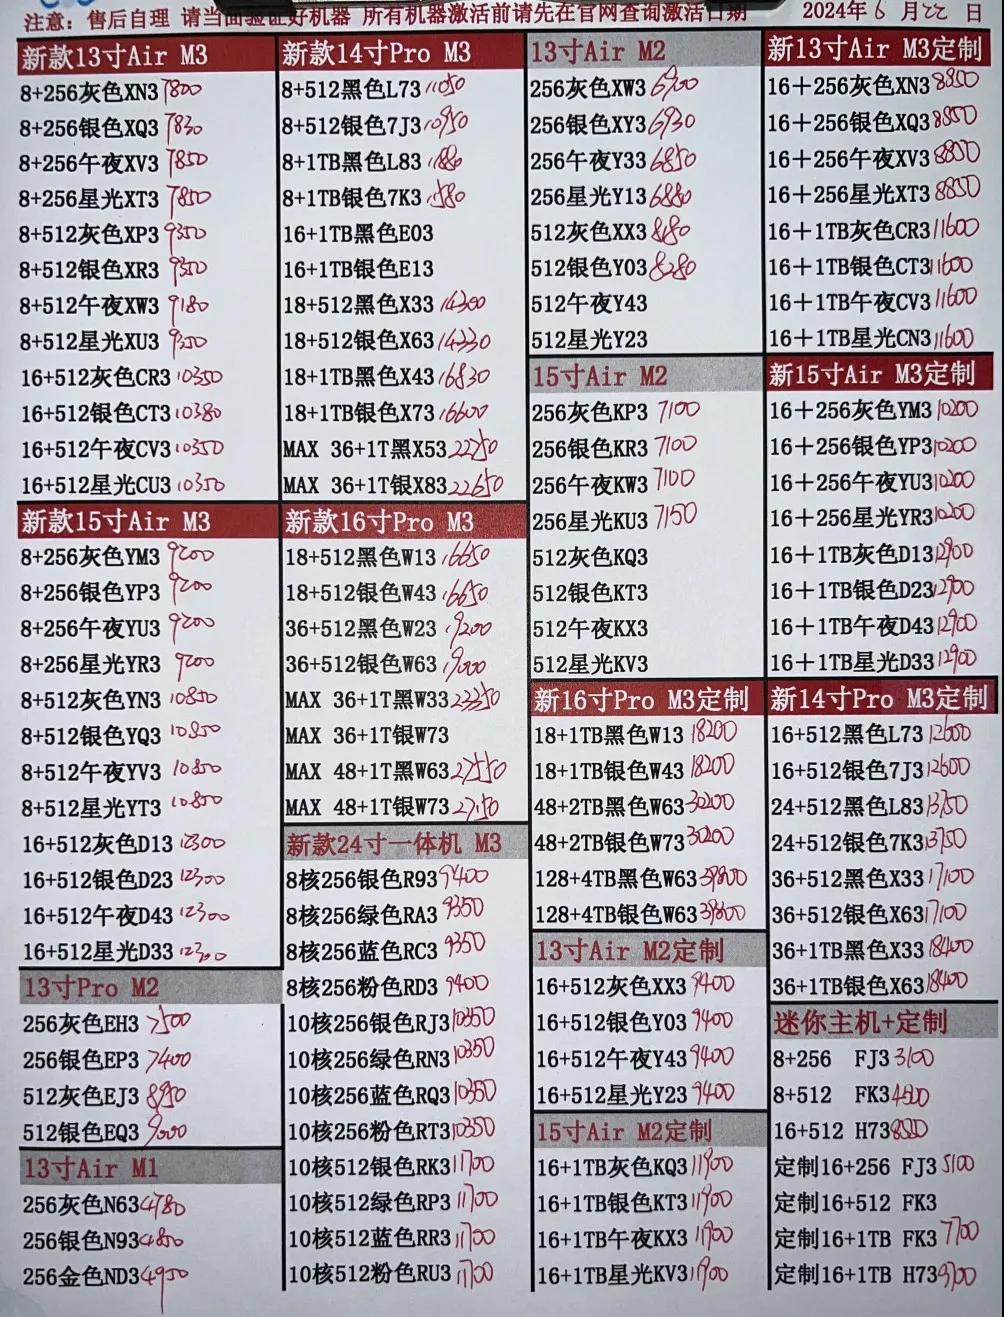 注意：售后自理 请当面验证好机器 所有机器激活前请先在官网查询激活日期 2024年6月22日
新款13寸Air M3
8+256灰色XN3 7800
8+256银色XQ3 7830
8+256午夜XV3 7850
8+256星光XT3 7850
8+512灰色XP3 9350
8+512银色XR3 9350
8+512午夜XW3 9180
8+512星光XU3 9350
16+512灰色CR3 10350
16+512银色CT3 10380
16+512午夜CV3 10350
16+512星光CU3 10350
新款15寸Air M3
8+256灰色YM3 9200
8+256银色YP3 9200
8+256午夜YU3 9200
8+256星光YR3 9200
8+512灰色YN3 10850
8+512银色YQ3 10850
8+512午夜YV3 10850
8+512星光YT3 10800
16+512灰色D13 12300
16+512银色D23 12300
16+512午夜D43 12300
16+512星光D33 12300
13寸Pro M2
256灰色EH3 7500
256银色EP3 7400
512灰色EJ3 8950
512银色EQ3 9000
13寸Air M1
256灰色N63 4780
256银色N93 4850
256金色ND3 4950
新款14寸Pro M3
8+512黑色L73 11050
8+512银色7J3 10950
8+1TB黑色L83
8+1TB银色7K3 11580
16+1TB黑色E03
16+1TB银色E13
18+512黑色X33 14300
18+512银色X63 14330
18+1TB黑色X43 16830
18+1TB银色X73 16600
MAX 36+1T黑X53 22750
MAX 36+1T银X83 22650
新款16寸Pro M3
18+512黑色W13 16650
18+512银色W43 16650
36+512黑色W23 19200
36+512银色W63 19000
MAX 36+1T黑W33 23350
MAX 36+1T银W73
MAX 48+1T黑W63 27550
MAX 48+1T银W73 27150
新款24寸一体机 M3
8核256银色R93 9400
8核256绿色RA3 9350
8核256蓝色RC3 9350
8核256粉色RD3 9400
10核256银色RJ3 10350
10核256绿色RN3 10350
10核256蓝色RQ3 10350
10核256粉色RT3 10350
10核512银色RK3 11700
10核512绿色RP3 11700
10核512蓝色RR3 11700
10核512粉色RU3 11700
13寸Air M2
256灰色XW3 6900
256银色XY3 6930
256午夜Y33 6850
256星光Y13 6880
512灰色XX3 8180
512银色Y03 8280
512午夜Y43
512星光Y23
15寸Air M2
256灰色KP3 7100
256银色KR3 7100
256午夜KW3 7100
256星光KU3 7150
512灰色KQ3
512银色KT3
512午夜KX3
512星光KV3
新16寸Pro M3定制
18+1TB黑色W13 18200
18+1TB银色W43 18200
48+2TB黑色W63 30200
48+2TB银色W73 30200
128+4TB黑色W63 39800
128+4TB银色W63 39800
13寸Air M2定制
16+512灰色XX3 9400
16+512银色Y03 9400
16+512午夜Y43 9400
16+512星光Y23 9400
15寸Air M2定制
16+1TB灰色KQ3 11900
16+1TB银色KT3 11900
16+1TB午夜KX3 11900
16+1TB星光KV3 11900
新13寸Air M3定制
16+256灰色XN3 8850
16+256银色XQ3 8850
16+256午夜XV3 8850
16+256星光XT3 8850
16+1TB灰色CR3 11600
16+1TB银色CT3 11600
16+1TB午夜CV3 11600
16+1TB星光CN3 11600
新15寸Air M3定制
16+256灰色YM3 10200
16+256银色YP3 10200
16+256午夜YU3 10200
16+256星光YR3 10200
16+1TB灰色D13 12900
16+1TB银色D23 12900
16+1TB午夜D43 12900
16+1TB星光D33 12900
新14寸Pro M3定制
16+512黑色L73 12600
16+512银色7J3 12600
24+512黑色L83 13750
24+512银色7K3 13750
36+512黑色X33 17100
36+512银色X63 17100
36+1TB黑色X33 18400
36+1TB银色X63 18400
迷你主机+定制
8+256 FJ3 3100
8+512 FK3 4500
16+512 H73
定制16+256 FJ3 5100
定制16+512 FK3
定制16+1TB FK3 7700
定制16+1TB H73 9700